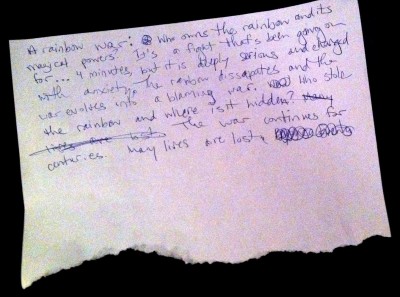 A rainbow war: Who owns the rainbow and its
magical powers? It's a fight that's been going on
for... 4 minutes, but it is deeply serious and charged
with anxiety. The rainbow dissapates and the
war evolves into a blaming war. Who stole
the rainbow and where is it hidden? Many
lives are lost. The war continues for
centuries. Many lives are lost.